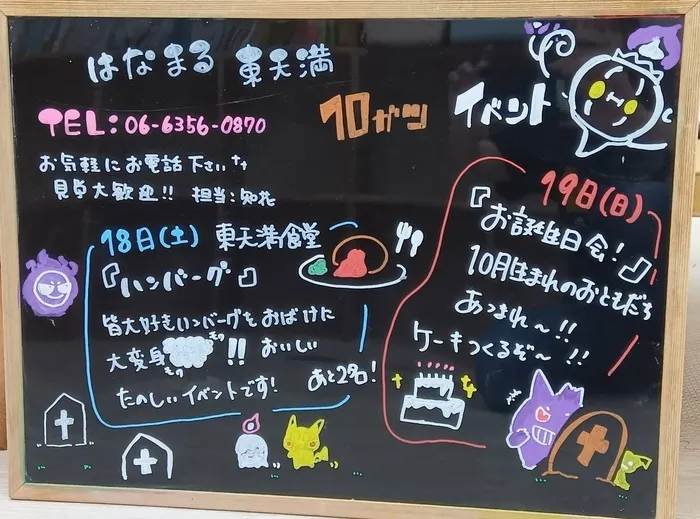 はなまる 東天満
TEL:06-6356-0870
お気軽にお電話下さい
見学大歓迎!! 担当:知花
10ガツ イベント
18日(土) 東天満食堂
『ハンバーグ』
皆大好きハンバーグをおばけに
大変身!! おいしい
たのしいイベントです!
あと2名!
19日(日)
『お誕生日会!』
10月生まれのおともだち
あつまれ〜!!
ケーキつくるぞ〜!!